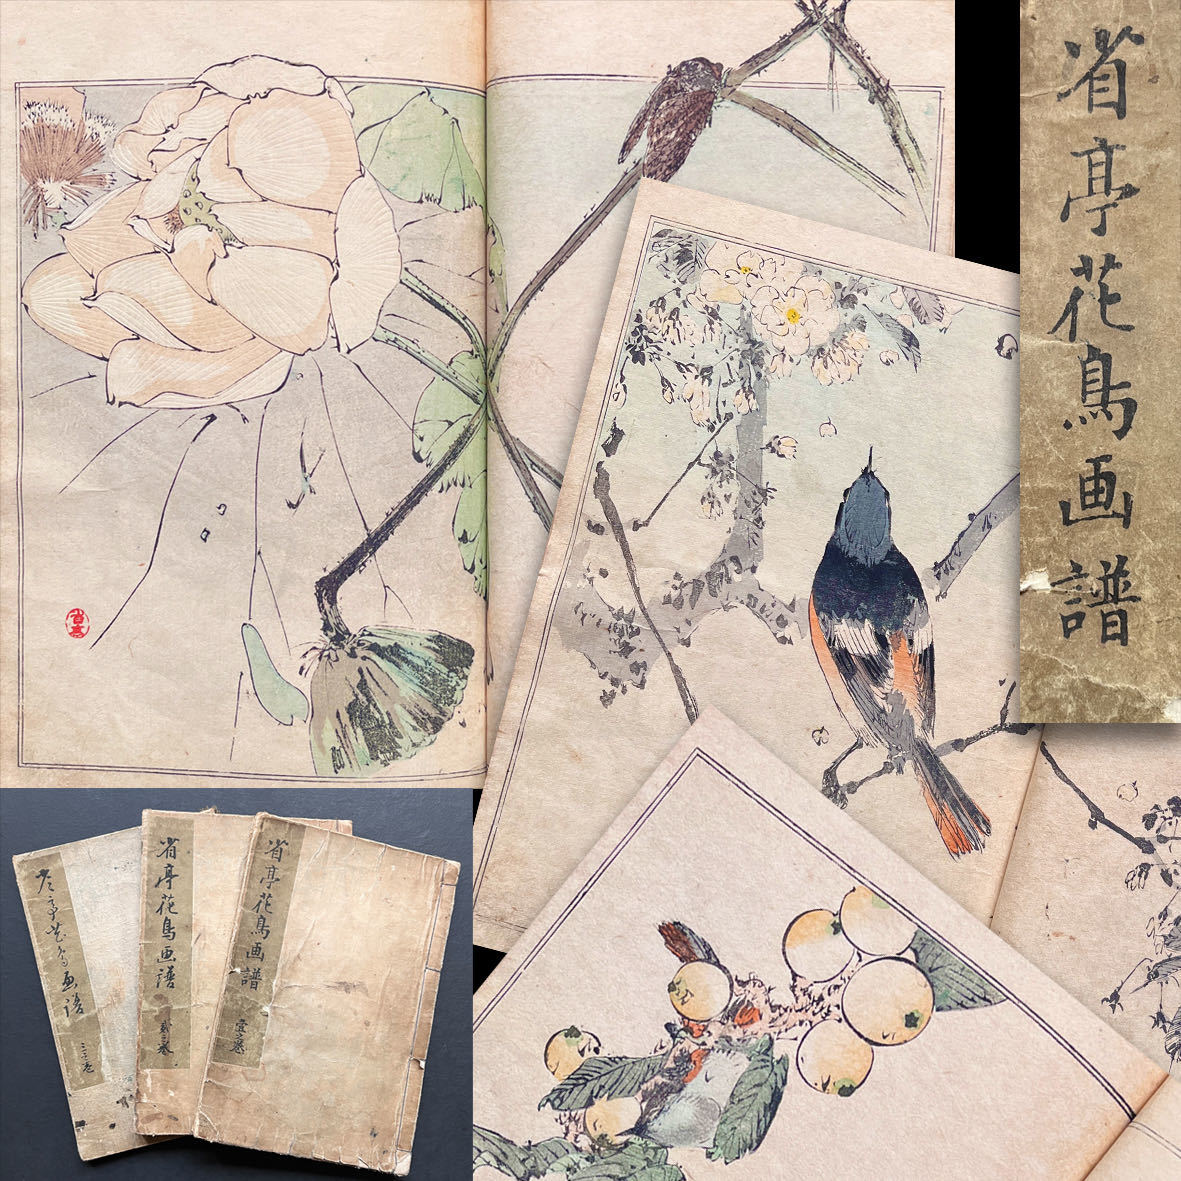 省亭花鳥画譜
省亭
省亭花鳥画譜
三之巻
省亭花鳥画譜
貳之巻
省亭花鳥画譜
壹之巻